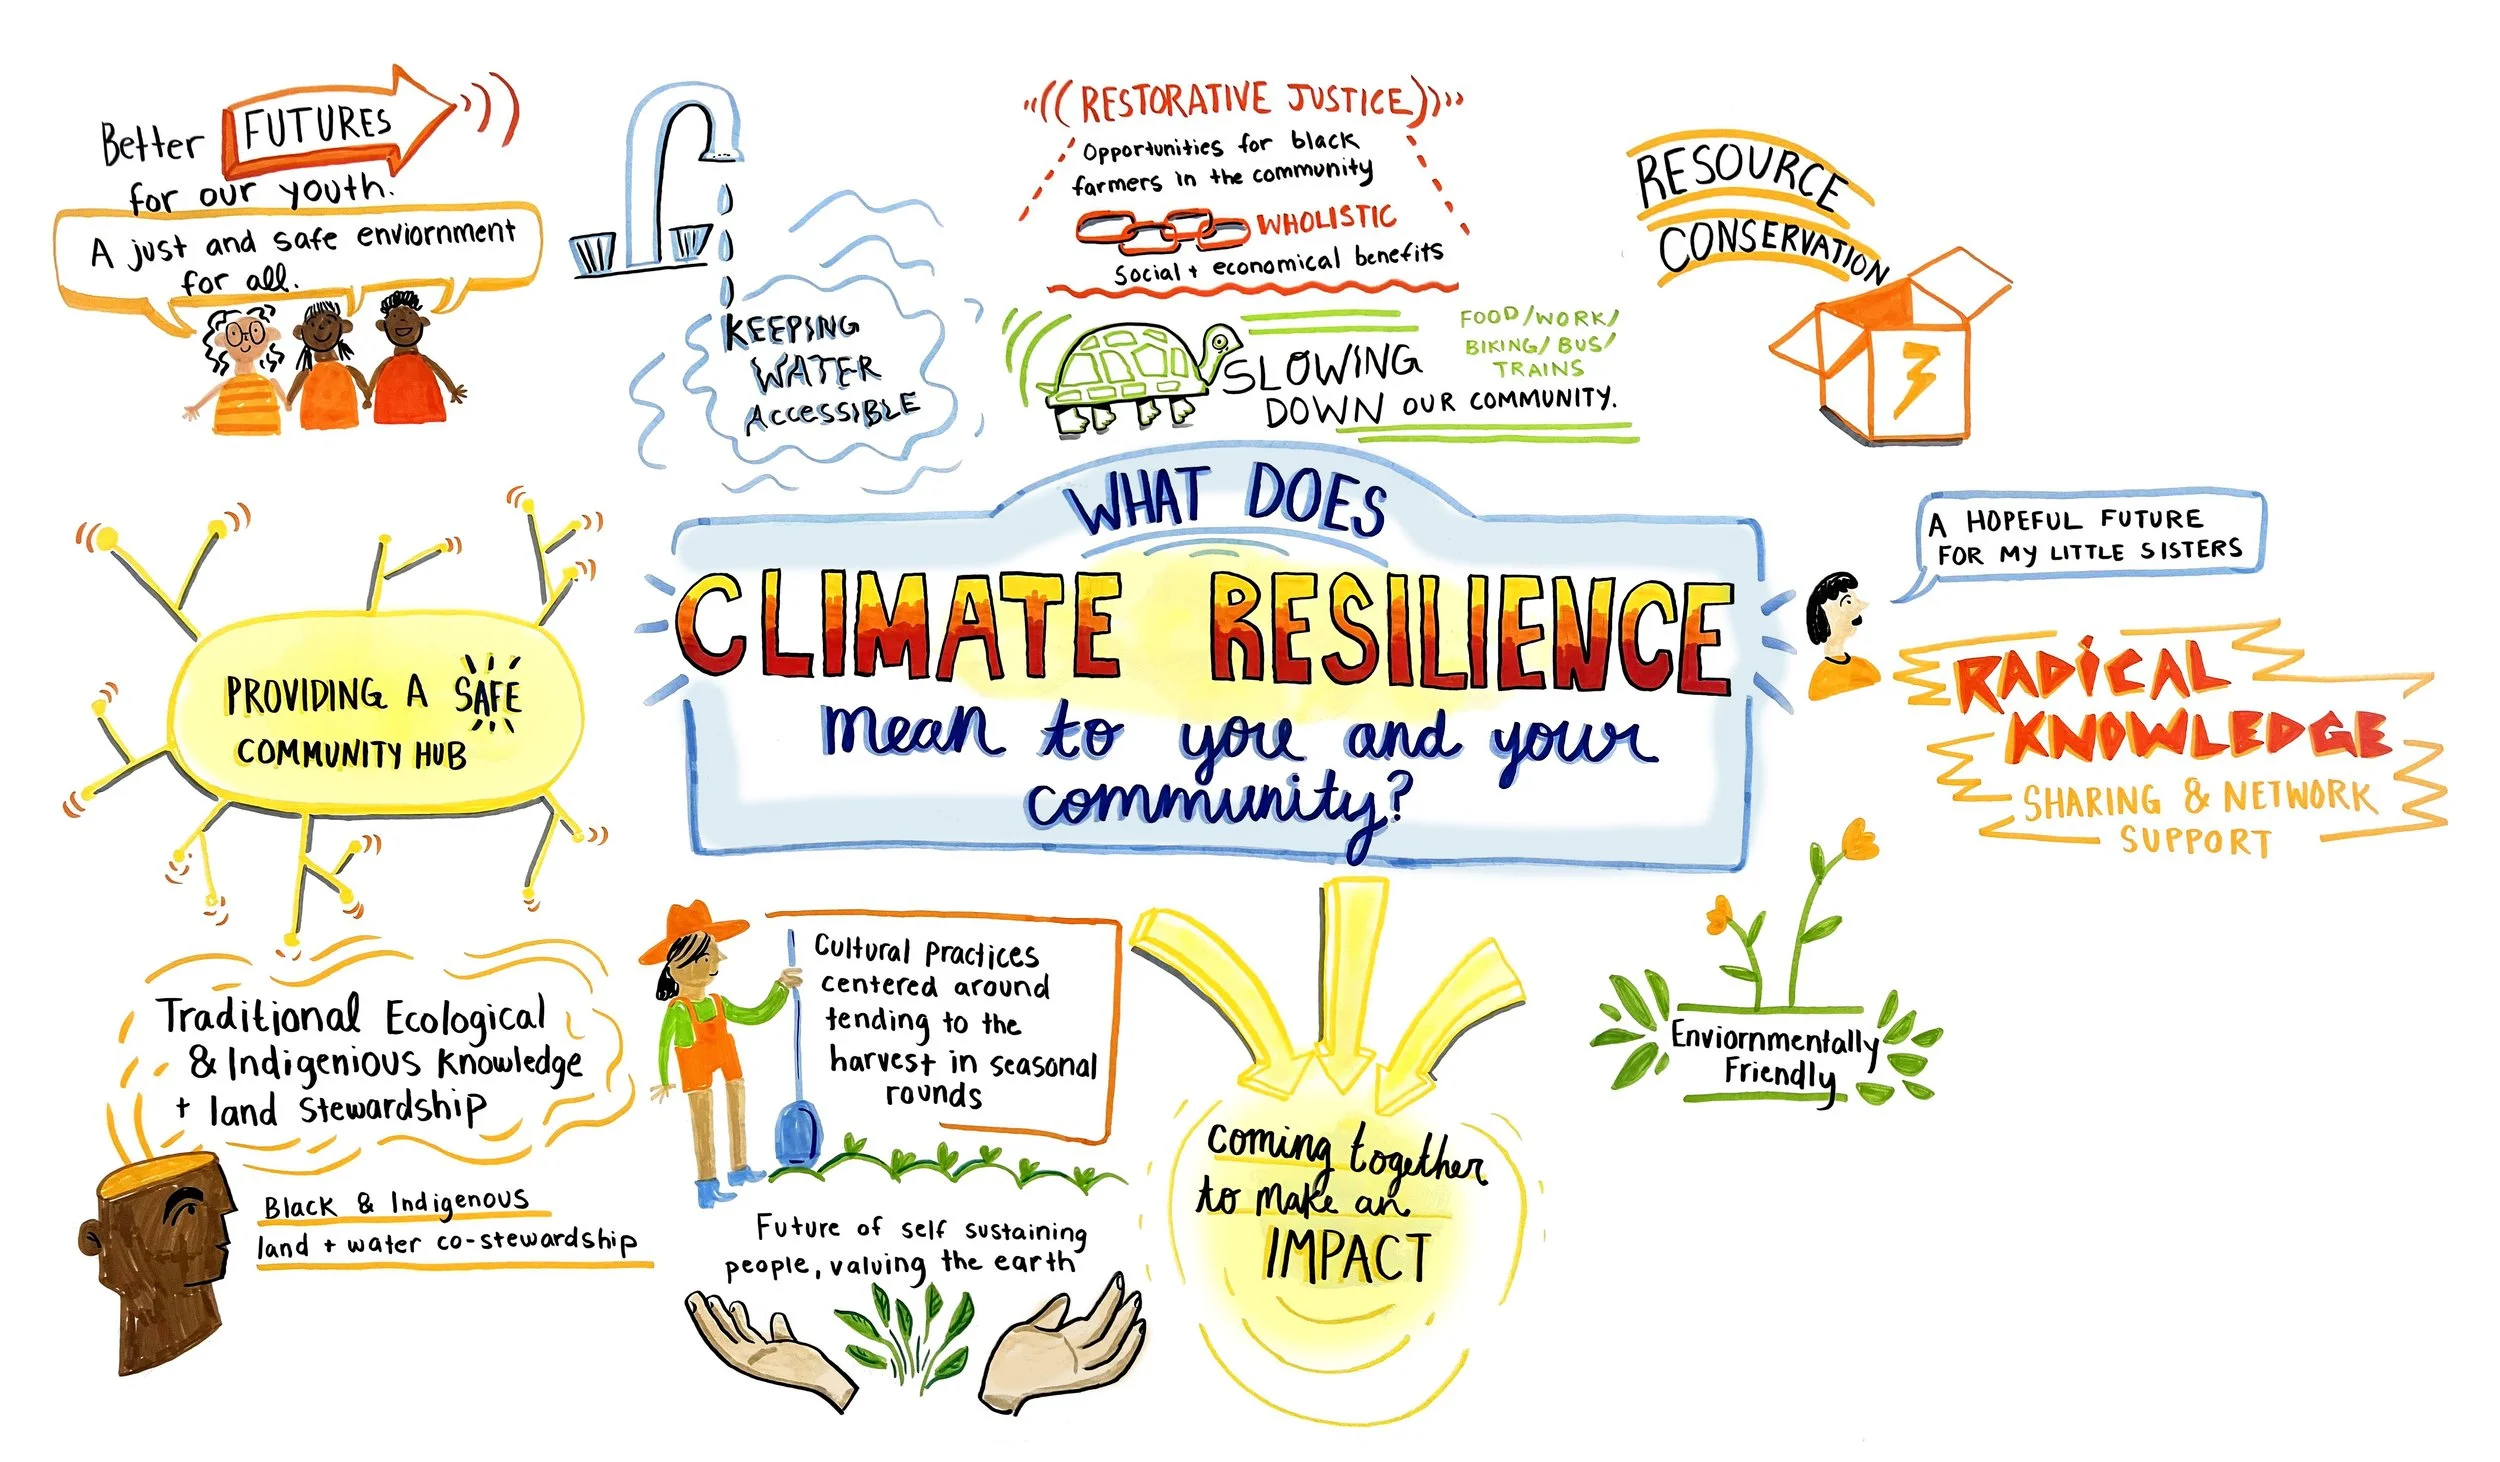 Better FUTURES
for our youth.
A just and safe enviornment
for all.
KEEPING
WATER
ACCESSIBLE
RESTORATIVE JUSTICE
Opportunities for black
farmers in the community
WHOLISTIC
Social + economical benefits
SLOWING
DOWN OUR COMMUNITY.
FOOD/WORK/
BIKING/BUS/
TRAINS
RESOURCE
CONSERVATION
WHAT DOES
CLIMATE RESILIENCE
mean to you and your
community?
A HOPEFUL FUTURE
FOR MY LITTLE SISTERS
RADICAL
KNOWLEDGE
SHARING & NETWORK
SUPPORT
PROVIDING A SAFE
COMMUNITY HUB
Traditional Ecological
& Indigenious Knowledge
+ land stewardship
Black & Indigenous
land + water co-stewardship
Cultural practices
centered around
tending to the
harvest in seasonal
rounds
Future of self sustaining
people, valuing the earth
coming together
to make an
IMPACT
Enviornmentally
Friendly